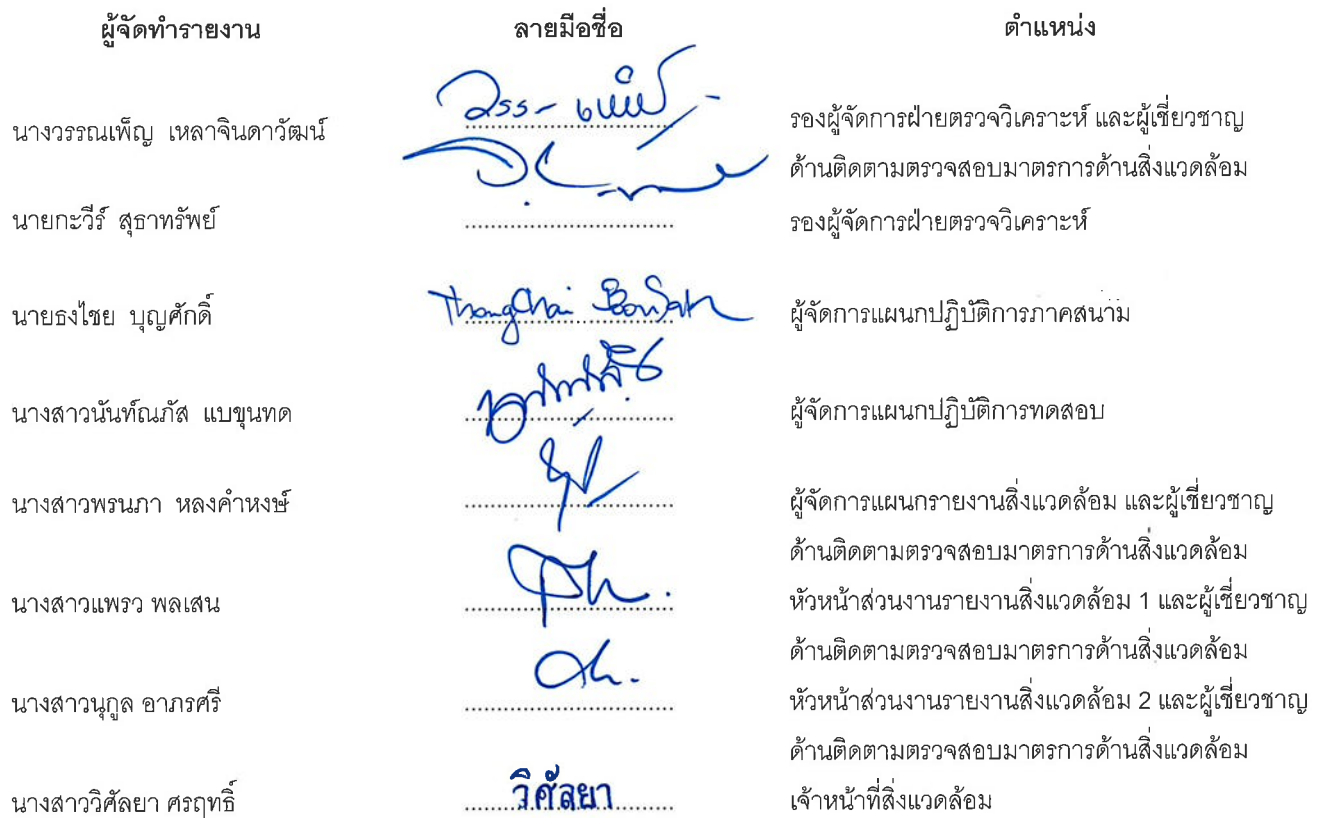 ผู้จัดทำรายงาน ลายมือชื่อ ตำแหน่ง
นางวรรณเพ็ญ เหลาจินดาวัฒน์ รองผู้จัดการฝ่ายตรวจวิเคราะห์ และผู้เชี่ยวชาญ
ด้านติดตามตรวจสอบมาตรการด้านสิ่งแวดล้อม
นายกะวีร์ สุธาทรัพย์ รองผู้จัดการฝ่ายตรวจวิเคราะห์
นายธงไชย บุญศักดิ์ ผู้จัดการแผนกปฏิบัติการภาคสนาม
นางสาวนันท์ณภัส แบขุนทด ผู้จัดการแผนกปฏิบัติการทดสอบ
นางสาวพรนภา หลงคำหงษ์ ผู้จัดการแผนกรายงานสิ่งแวดล้อม และผู้เชี่ยวชาญ
ด้านติดตามตรวจสอบมาตรการด้านสิ่งแวดล้อม
นางสาวแพรว พลเสน หัวหน้าส่วนงานรายงานสิ่งแวดล้อม 1 และผู้เชี่ยวชาญ
ด้านติดตามตรวจสอบมาตรการด้านสิ่งแวดล้อม
นางสาวนุกูล อาภรศรี หัวหน้าส่วนงานรายงานสิ่งแวดล้อม 2 และผู้เชี่ยวชาญ
ด้านติดตามตรวจสอบมาตรการด้านสิ่งแวดล้อม
นางสาววิศัลยา ศรฤทธิ์ วิศัลยา เจ้าหน้าที่สิ่งแวดล้อม